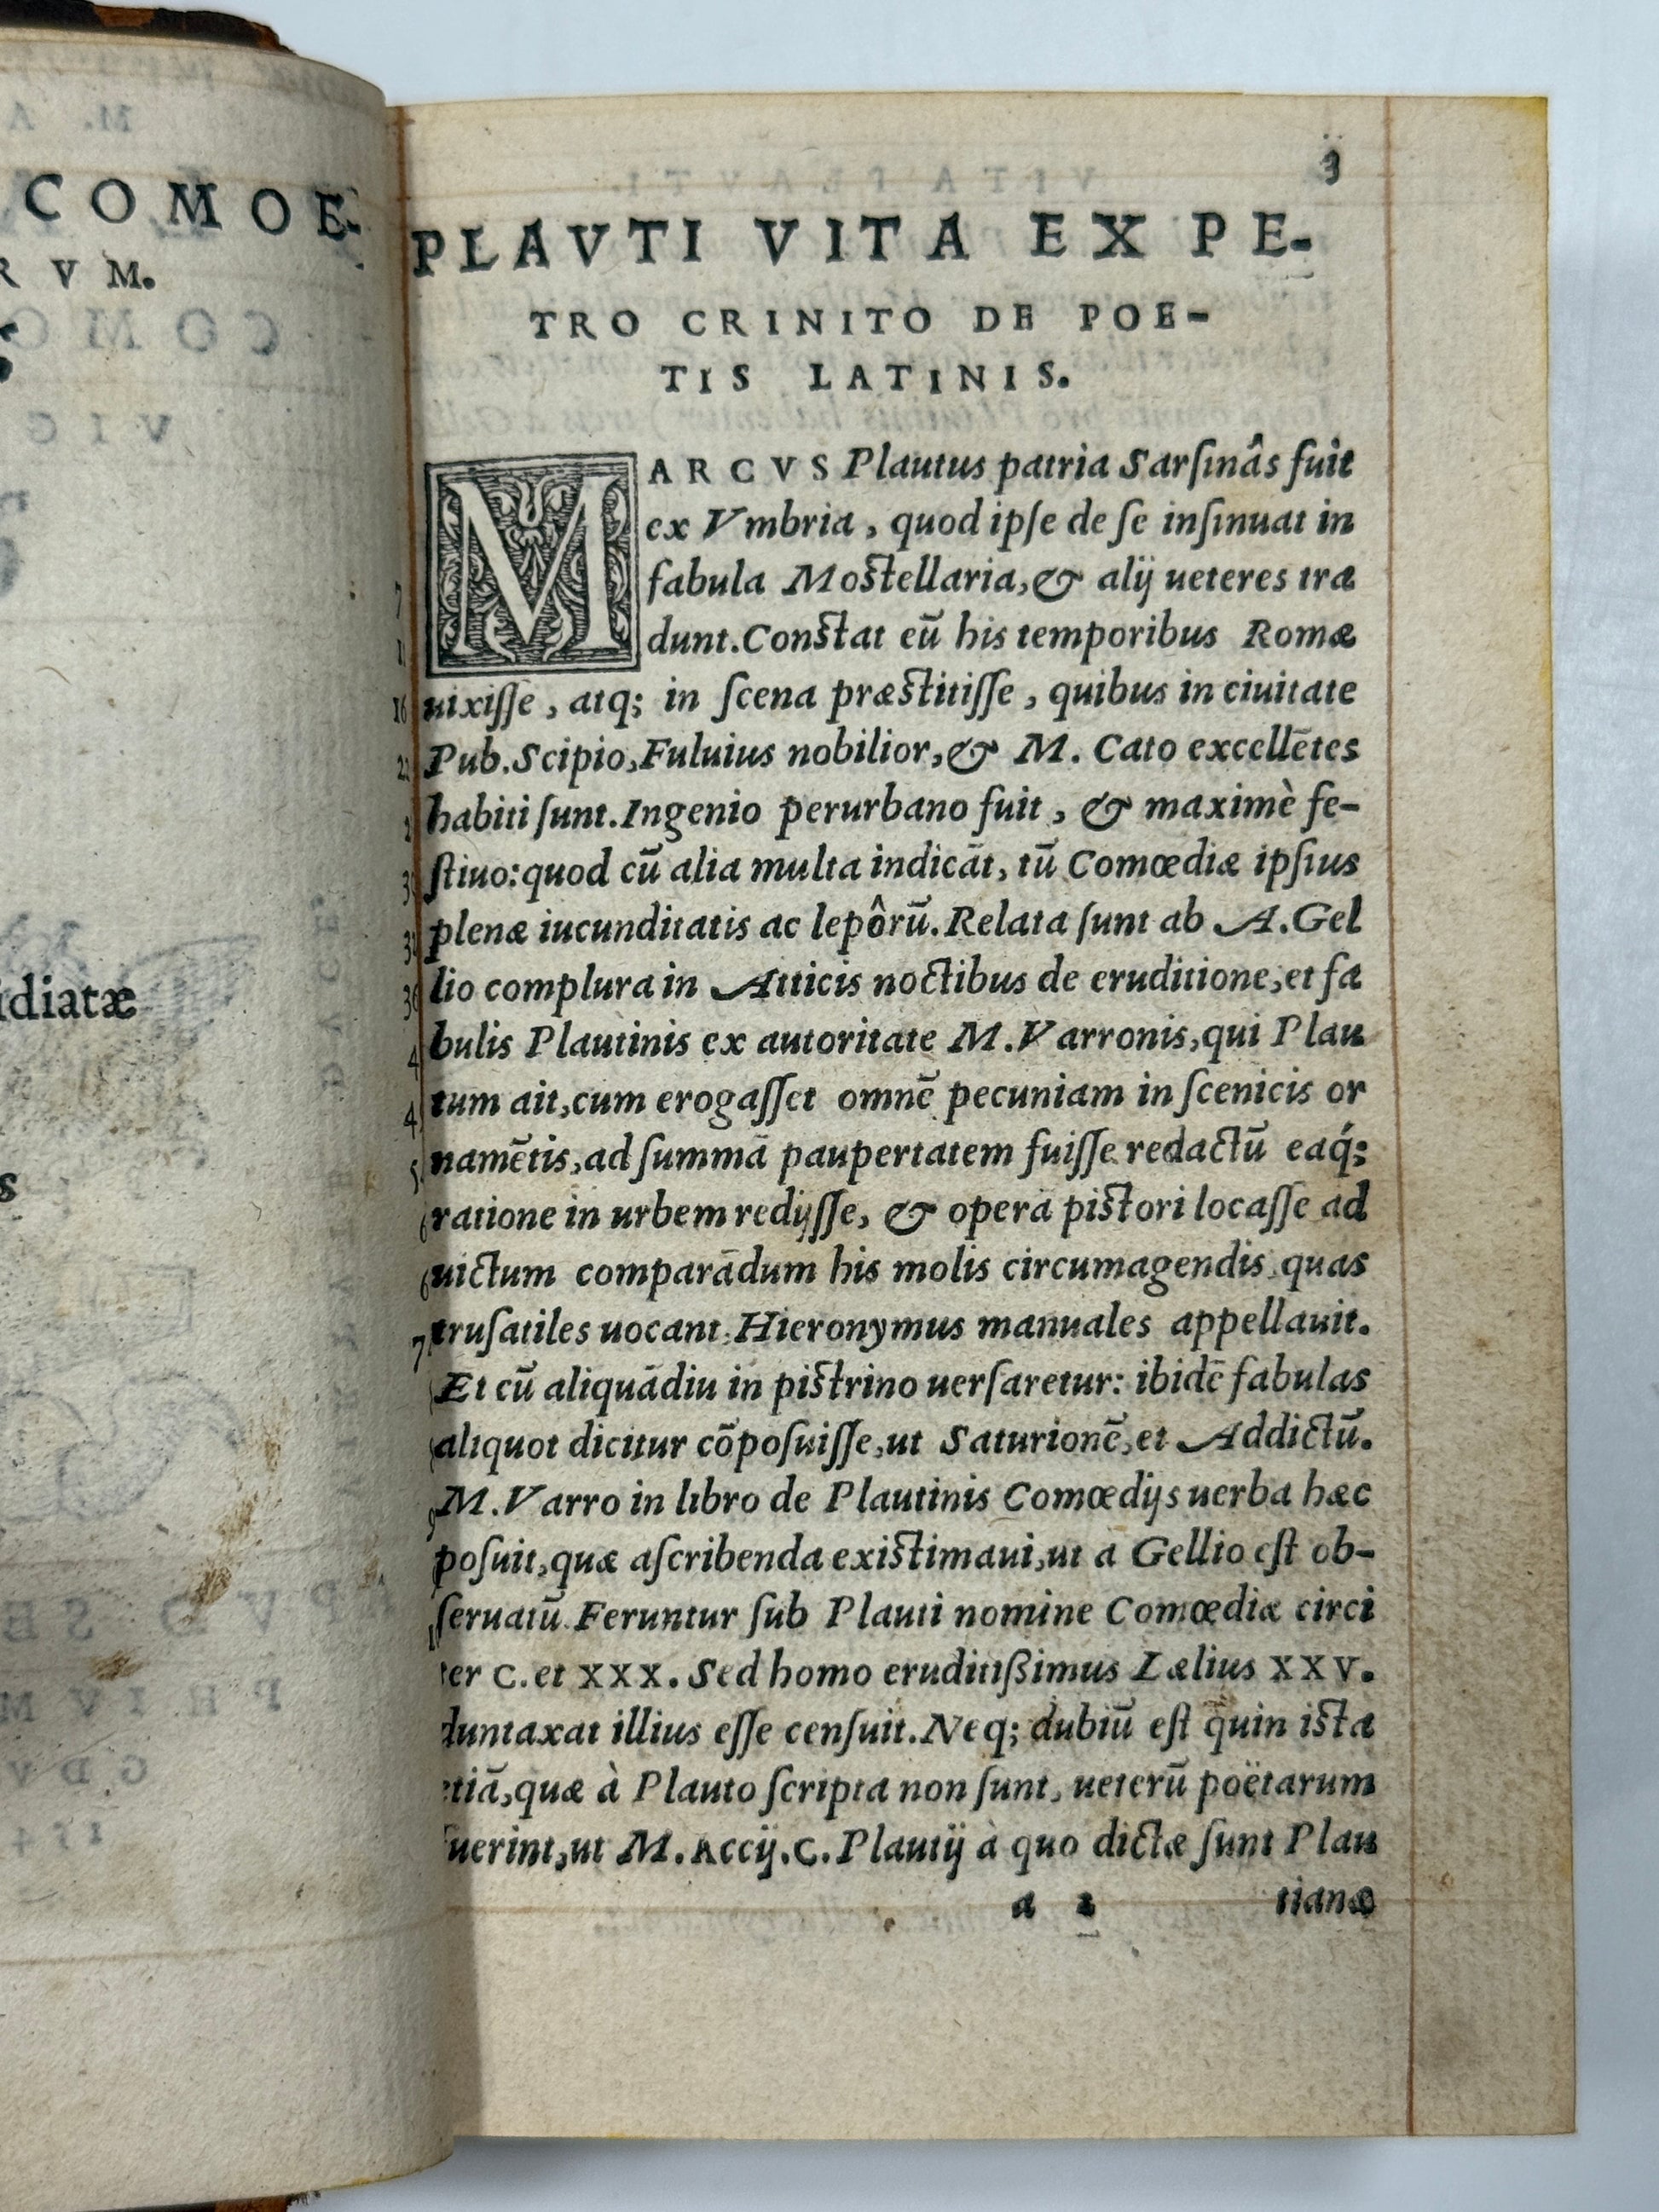 COMOE-
RVM.
idiatæ
s
3
PLAVTI VITA EX PE-
TRO CRINITO DE POE-
TIS LATINIS.
MARCVS Plautus patria Sarſinâs fuit
ex Vmbria, quod ipſe de ſe inſinuat in
fabula Moſtellaria, & alij ueteres tra
dunt. Conſtat eū his temporibus Romæ
uixiſſe, atq; in ſcena præſtitiſſe, quibus in ciuitate
Pub. Scipio, Fuluius nobilior, & M. Cato excellētes
habiti ſunt. Ingenio perurbano fuit, & maximè fe-
ſtiuo: quod cū alia multa indicāt, tū Comœdiæ ipſius
plenæ iucunditatis ac lepôrū. Relata ſunt ab A. Gel
lio complura in Atticis noctibus de eruditione, et fa
bulis Plautinis ex autoritate M. Varronis, qui Plau
tum ait, cum erogaſſet omnē pecuniam in ſcenicis or
namētis, ad ſummā paupertatem fuiſſe redactū eaq́;
ratione in urbem redijſſe, & operā piſtori locaſſe ad
uictum comparādum his molis circumagendis, quas
truſatiles uocant: Hieronymus manuales appellauit.
Et cū aliquādiu in piſtrino uerſaretur: ibidē fabulas
aliquot dicitur cōpoſuiſſe, ut Saturionē, et Addictū.
M. Varro in libro de Plautinis Comœdijs uerba hæc
poſuit, quæ aſcribenda exiſtimaui, ut à Gellio eſt ob-
ſeruatū. Feruntur ſub Plauti nomine Comœdiæ circi
ter C. et XXX. Sed homo eruditißimus Lælius XXV.
duntaxat illius eſſe cenſuit. Neq; dubiū eſt quin iſta
etiā, quæ à Plauto ſcripta non ſunt, ueterū poëtarum
fuerint, ut M. Accij. C. Plautij à quo dictæ ſunt Plau
a 2 tianæ